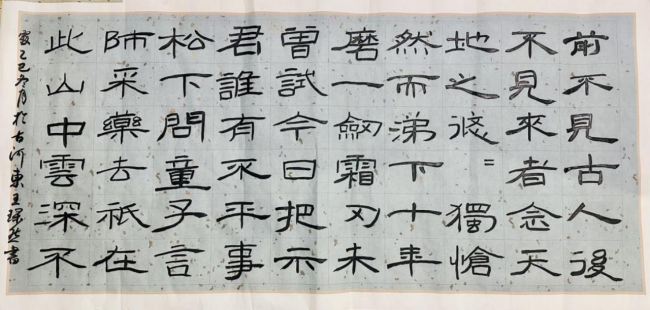 前不見古人後
不見來者念天
地之悠=獨愴
然而涕下十年
磨一劒霜刃未
曾試今日把示
君誰有不平事
松下問童子言
師采藥去祇在
此山中雲深不
處乙巳冬月於古河東王書